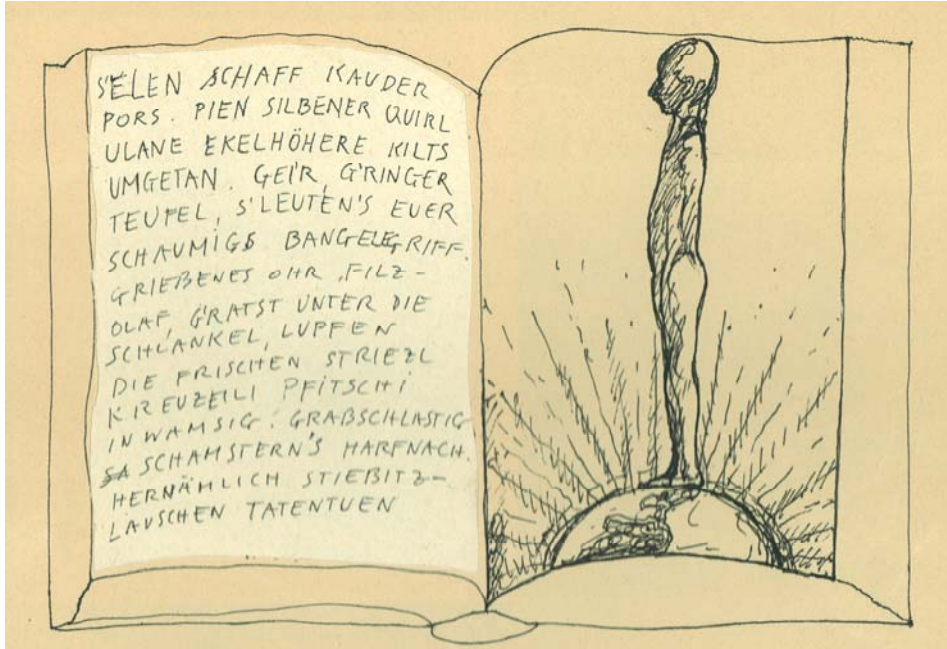 S'ELEN SCHAFF KAUDER
PORS. PIEN SILBENER QUIRL
ULANE EKELHÖHERE KILTS
UMGETAN. GEI'R, G'RINGER
TEUFEL, S'LEUTEN'S EUER
SCHAUMIGS BANGELEGRIFF.
GRIEßENES OHR, FILZ-
OLAF, G'RATST UNTER DIE
SCHLANKEL, LUPFEN
DIE FRISCHEN STRIEZL
KREUZEILI PFITSCHI
INWAMSIG. GRAßSCHLASTIG
SCHAMSTERN'S HARFNACH.
HERNÄHLICH STIEßITZ-
LAUSCHEN TATENTUEN